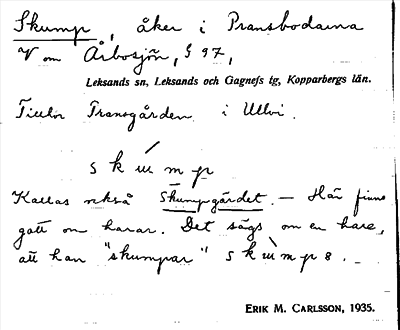 Skump, åker i Pransbodarna
V om Årbosjön, § 97,
Leksands sn, Leksands och Gagnefs tg, Kopparbergs län.
Tillhör Transgården i Ullvi.
skump
Kallas också Skumpgärdet. — Här finns
gott om harar. Det sägs om en hare,
att han "skumpar" skumps. —
ERIK M. CARLSSON, 1935.